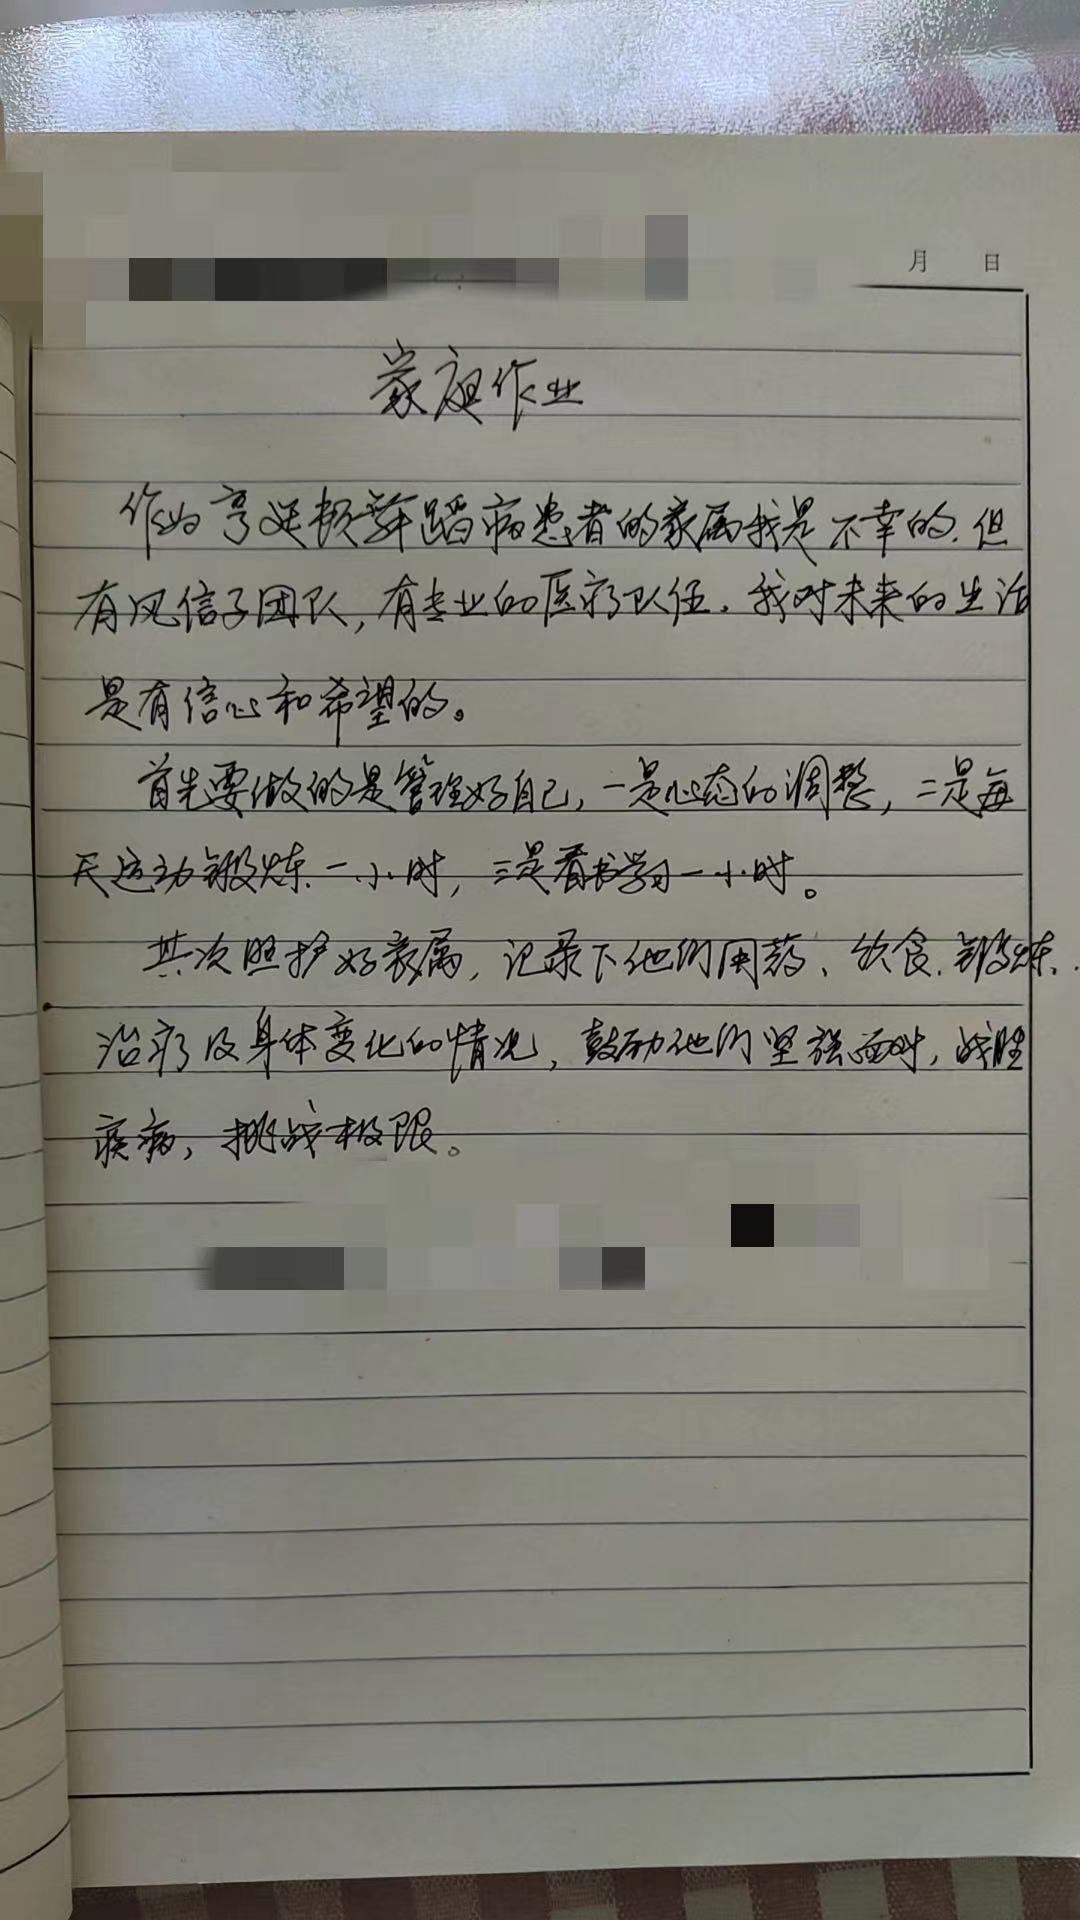 月 日
家庭作业
作为亨廷顿舞蹈病患者的家属我是不幸的.但
有风信子团队,有专业的医疗队伍.我对未来的生活
是有信心和希望的。
首先要做的是管理好自己,一是心态的调整,二是每
天运动锻炼一小时,三是看书学习一小时。
其次照护好家属,记录下他们用药、饮食.锻炼、
治疗及身体变化的情况,鼓励他们坚强面对,战胜
疾病,挑战极限。